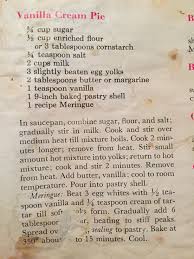 Vanilla Cream Pie
¾ cup sugar
⅓ cup enriched flour
or 3 tablespoons cornstarch
¼ teaspoon salt
2 cups milk
3 slightly beaten egg yolks
2 tablespoons butter or margarine
1 teaspoon vanilla
1 9-inch baked pastry shell
1 recipe Meringue
In saucepan, combine sugar, flour, and salt;
gradually stir in milk. Cook and stir over
medium heat till mixture boils. Cook 2 min-
utes longer; remove from heat. Stir small
amount hot mixture into yolks; return to hot
mixture; cook 2 minutes, stirring constantly.
Remove from heat. Add butter, vanilla; cool to
room temperature. Pour into pastry shell.
Meringue: Beat 3 egg whites with ½ tea-
spoon vanilla and ¼ teaspoon cream of tar-
tar till soft form. Gradually add 6
tablespoon beating to stiff peaks.
Spread ov sealing to pastry. Bake at
350° abou to 15 minutes. Cool.